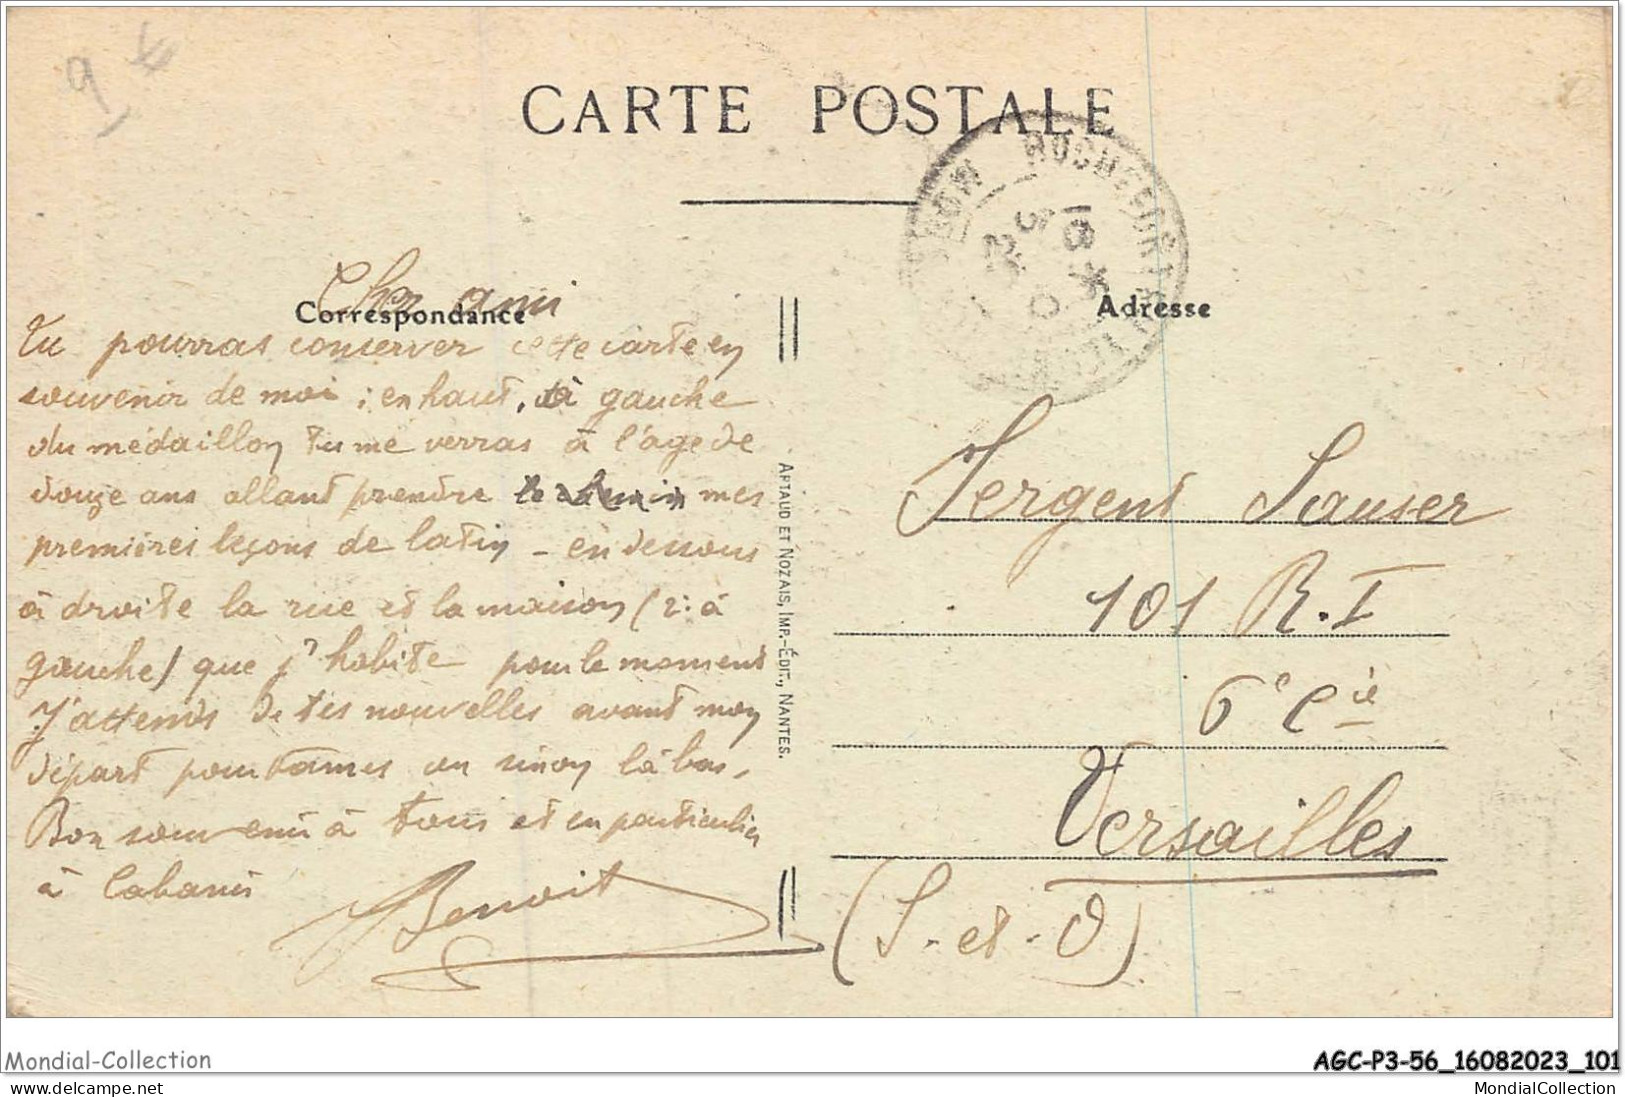 9 €
CARTE POSTALE
ROCHEFORT
18 *
5
MORBIHAN
Correspondance
Adresse
Cher ami
Tu pourras conserver cette carte en
souvenir de moi ; en haut, à gauche
du médaillon tu me verras à l'age de
douze ans allant prendre mes
premières leçons de latin - en dessous
à droite la rue et la maison (2: à
gauche) que j'habite pour le moment
J'attends de tes nouvelles avant mon
départ pour ou sinon là bas.
Bon souvenir à tous et en particulier
à Cabanis
Benoit
ARTAUD ET NOZAIS, IMP.-ÉDIT., NANTES.
Sergent Sauser
101 R.I
6e Cie
Versailles
(S.-et-O)
Mondial-Collection
AGC-P3-56_16082023_101
www.delcampe.net
MondialCollection